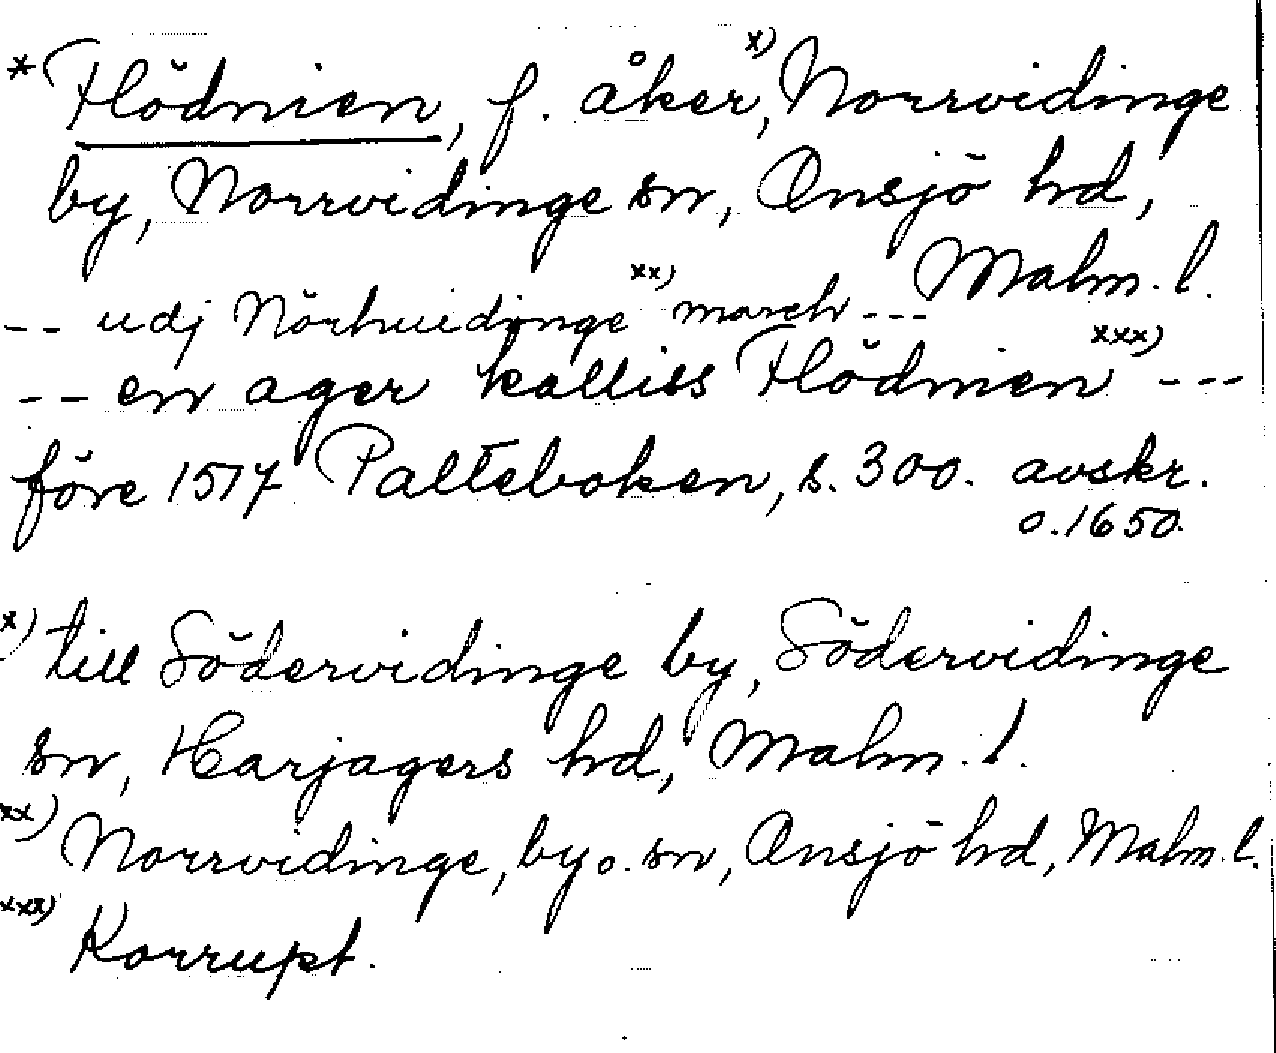 * Flödnien, f. åker,ˣ⁾ Norrvidinge
by, Norrvidinge sn, Onsjö hd,
Malm. l.
-- udj Nörhuidinge ˣˣ⁾ march ---
-- en ager kalliss Flödnien ˣˣˣ⁾ ---
före 1517 Palteboken, s. 300. avskr.
o. 1650.
x) till Södervidinge by, Södervidinge
sn, Harjagers hd, Malm. l.
xx) Norrvidinge, by o. sn, Onsjö hd, Malm. l.
xxx) Korrupt.